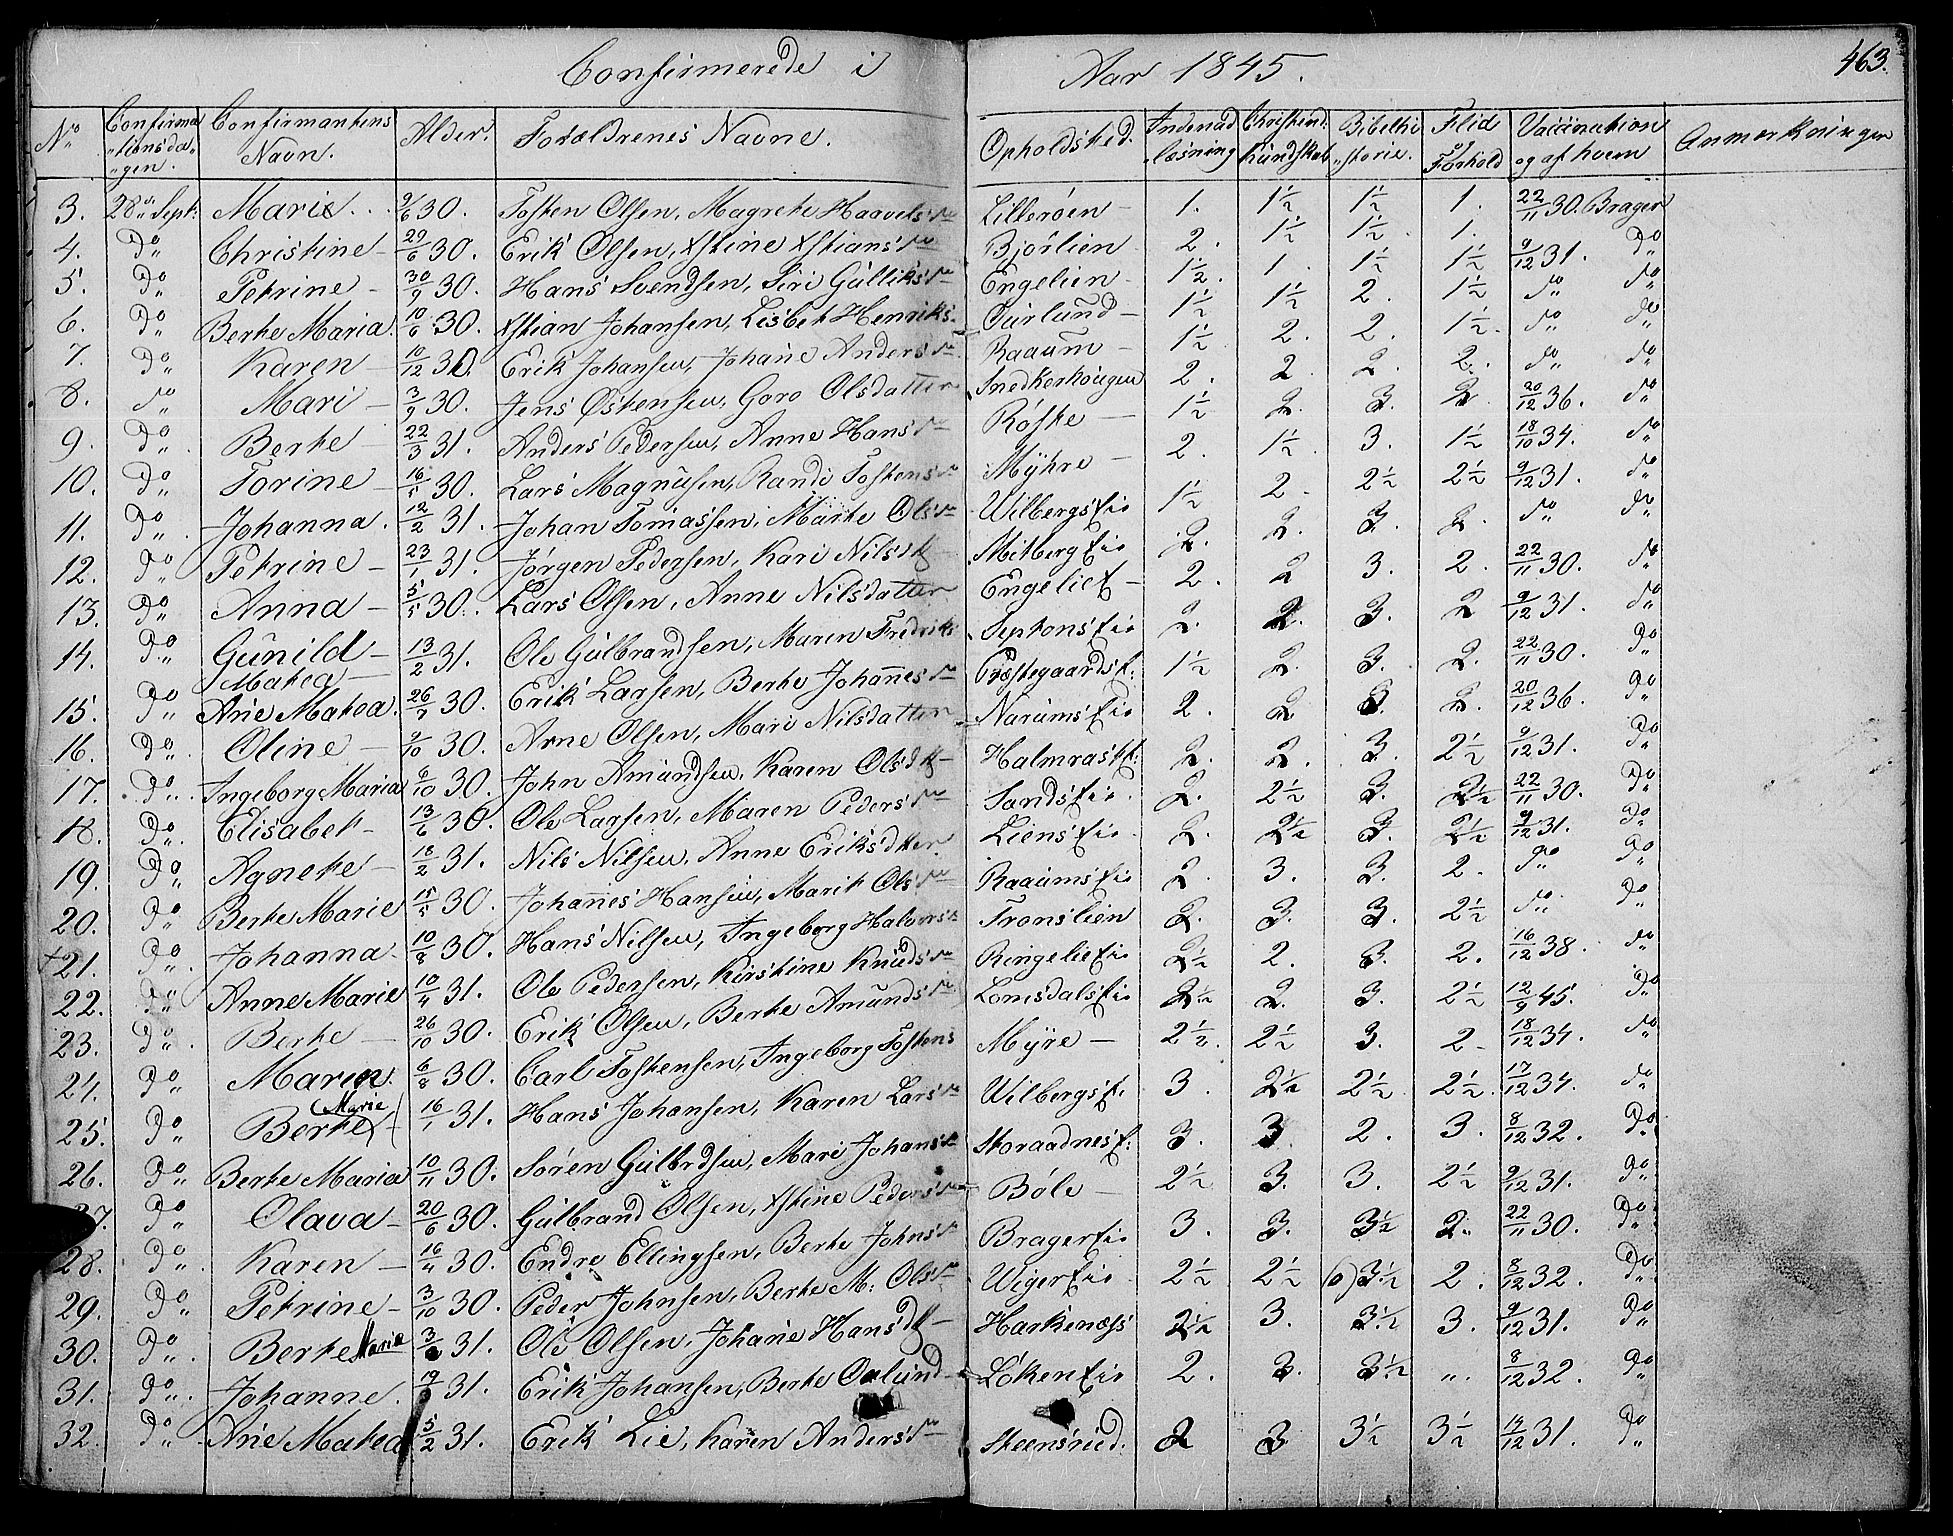 Confirmerede i Aar 1845. 463.
No Confirmationsdagen. Confirmantens Navn. Alder. Forældrenes Navne. Opholdsted. Indenadlæsning Christend: kundskab Bibelhistorie. Flid Forhold Vaccination og af hvem Anmerkninger
3. 28de Sept: Marie 9/6 30. Tosten Olsen, Magrete Haavelsdr Lillerøen 1. 1½ 1½ 1. 22/11 30. Brager
4. Do Christine 29/6 30. Erik Olsen, Xstine Xstiansdr Bjørlien 2. 1½ 1½ 1. 9/12 31. Do
5. Do Petrine 30/9 30. Hans Svendsen, Siri Gulliksdr Engelien 1½. 1. 1½ 1½ do do
6. Do Berte Maria. 10/6 30. Xstian Johansen, Lisbet Henriks. 1½ 1½ 2. 1½ do do
7. Do Karen 10/12 30. Erik Johansen, Johane Andersdr Raaum 1½ 2. 2. 1½. do do
8. do Mari 3/9 30. Jens Østensen, Goro Olsdatter Snedkerhougen 2. 2. 2. 2. 20/12 36. do
9. Do Berte 22/3 31. Anders Pedersen, Anne Hansdr Røste 1½ 2. 3. 2. 18/10 34. do
10. Do Torine 16/5 30. Lars Magnusen, Randi Tostensdr Myhre 2. 1½ 3. 1½ 9/12 31. do
11. Do Johanna. 12/2 31. Johan Tomassen, Marte Olsdr Wilbergs Eie 1½ 2. 2½ 2½ do do
12. Do Petrine 23/1 31. Jørgen Pedersen, Kari Nilsdt Mitberg Eie 2. 2. 3. 2. 22/11 30. do
13. Do Anna 5/5 30. Lars Olsen, Anne Nilsdatter Engelie E 2. 2 3. 2. 9/12 31. do
14. Do Gunild Matea 13/2 31. Ole Gulbrandsen, Maren Fredriks Septons Eie 2. 2. 3. 2 22/11 30. Do
15. Do Ane Matea. 26/7 30. Erik Larsen, Berte Johannesdr Præstegaards E: 1½ 2. 3. 2. 20/12 36. Do
16. Do Oline 9/10 30. Arne Olsen, Mari Nilsdatter Narums Eie 2. 2 3. 2. 9/12 31. Do
17. Do Ingeborg Maria 9/10 30. John Amundsen, Karen Olsdt Halmrast E: 2. 2. 3. 2½ 22/11 30. Do
18. Do Elisabet 13/6 30. Ole Larsen, Maren Pedersdr Sands Eie 2. 2½ 3. 2½ 9/12 31. Do
19. Do Agnete 18/2 31. Nils Nilsen, Anne Eriksdtter Liens Eie 2. 2½ 3. 2½ do Do
20. Do Berte Marie 15/5 30. Johannes Hansen, Marit Olsdr Raaums Eie 2. 3. 3. 2. do Do
+21. Do Johanna. 10/8 30. Hans Nilsen, Ingeborg Halvors Tronslien 2. 3. 3. 2½ 16/12 38. do
22. Do Anne Marie 10/4 31. Ole Pedersen, Kirstine Knudsdr Ringelie Eie 2½ 2. 3. 2. 12/9 45. Do
23. Do Berte 26/10 30. Erik Olsen, Berte Amundsdr Lomsdals Eie 2½ 2. 3. 2½ 18/12 34. do
24. Do Maren. 6/8 30. Carl Tostensen, Ingeborg Tostens Myre 2½. 2½ 3. 2 17/12 34. do
25. Do Berte Marie 16/1 31. Hans Johansen, Karen Larsdr Wilbergs E. 3. 2½ 2½ 2½ 8/12 32. Do
26. Do Berte Maria 10/11 30. Søren Gulbrdsen, Mari Johansdr 3. 3. 2. 3. 9/12 31. Do
27. Do Olava 20/6 30. Gulbrand Olsen, Xstine Pedersdr Bøle 2½ 3. 3. 2½ 22/11 30. Do
28. Do Karen 16/4 30. Endre Ellingsen, Berte Johnsdr Brager Eie 3. 3. 3½ 2. 8/12 32. Do
29. Do Petrine 3/10 30. Peder Johnsen, Berte M: Olsdr Wiger Eie 2½ 2½ 3½ 2. 9/12 31. Do
30. Do Berte Maria 31. Ole Olsen, Johane Hansdt Harkenæss 2½ 3. 3½ 3. 8/12 32. Do
31. Do Johanne. 31. Erik Johansen, Berte Løken Eie 2. 3. 3½ „.
32. Do Ane Matea 5/2 31. Erik Lie, Karen Andersdr Steensrud. 2 3 3½ 3½ 31. Do